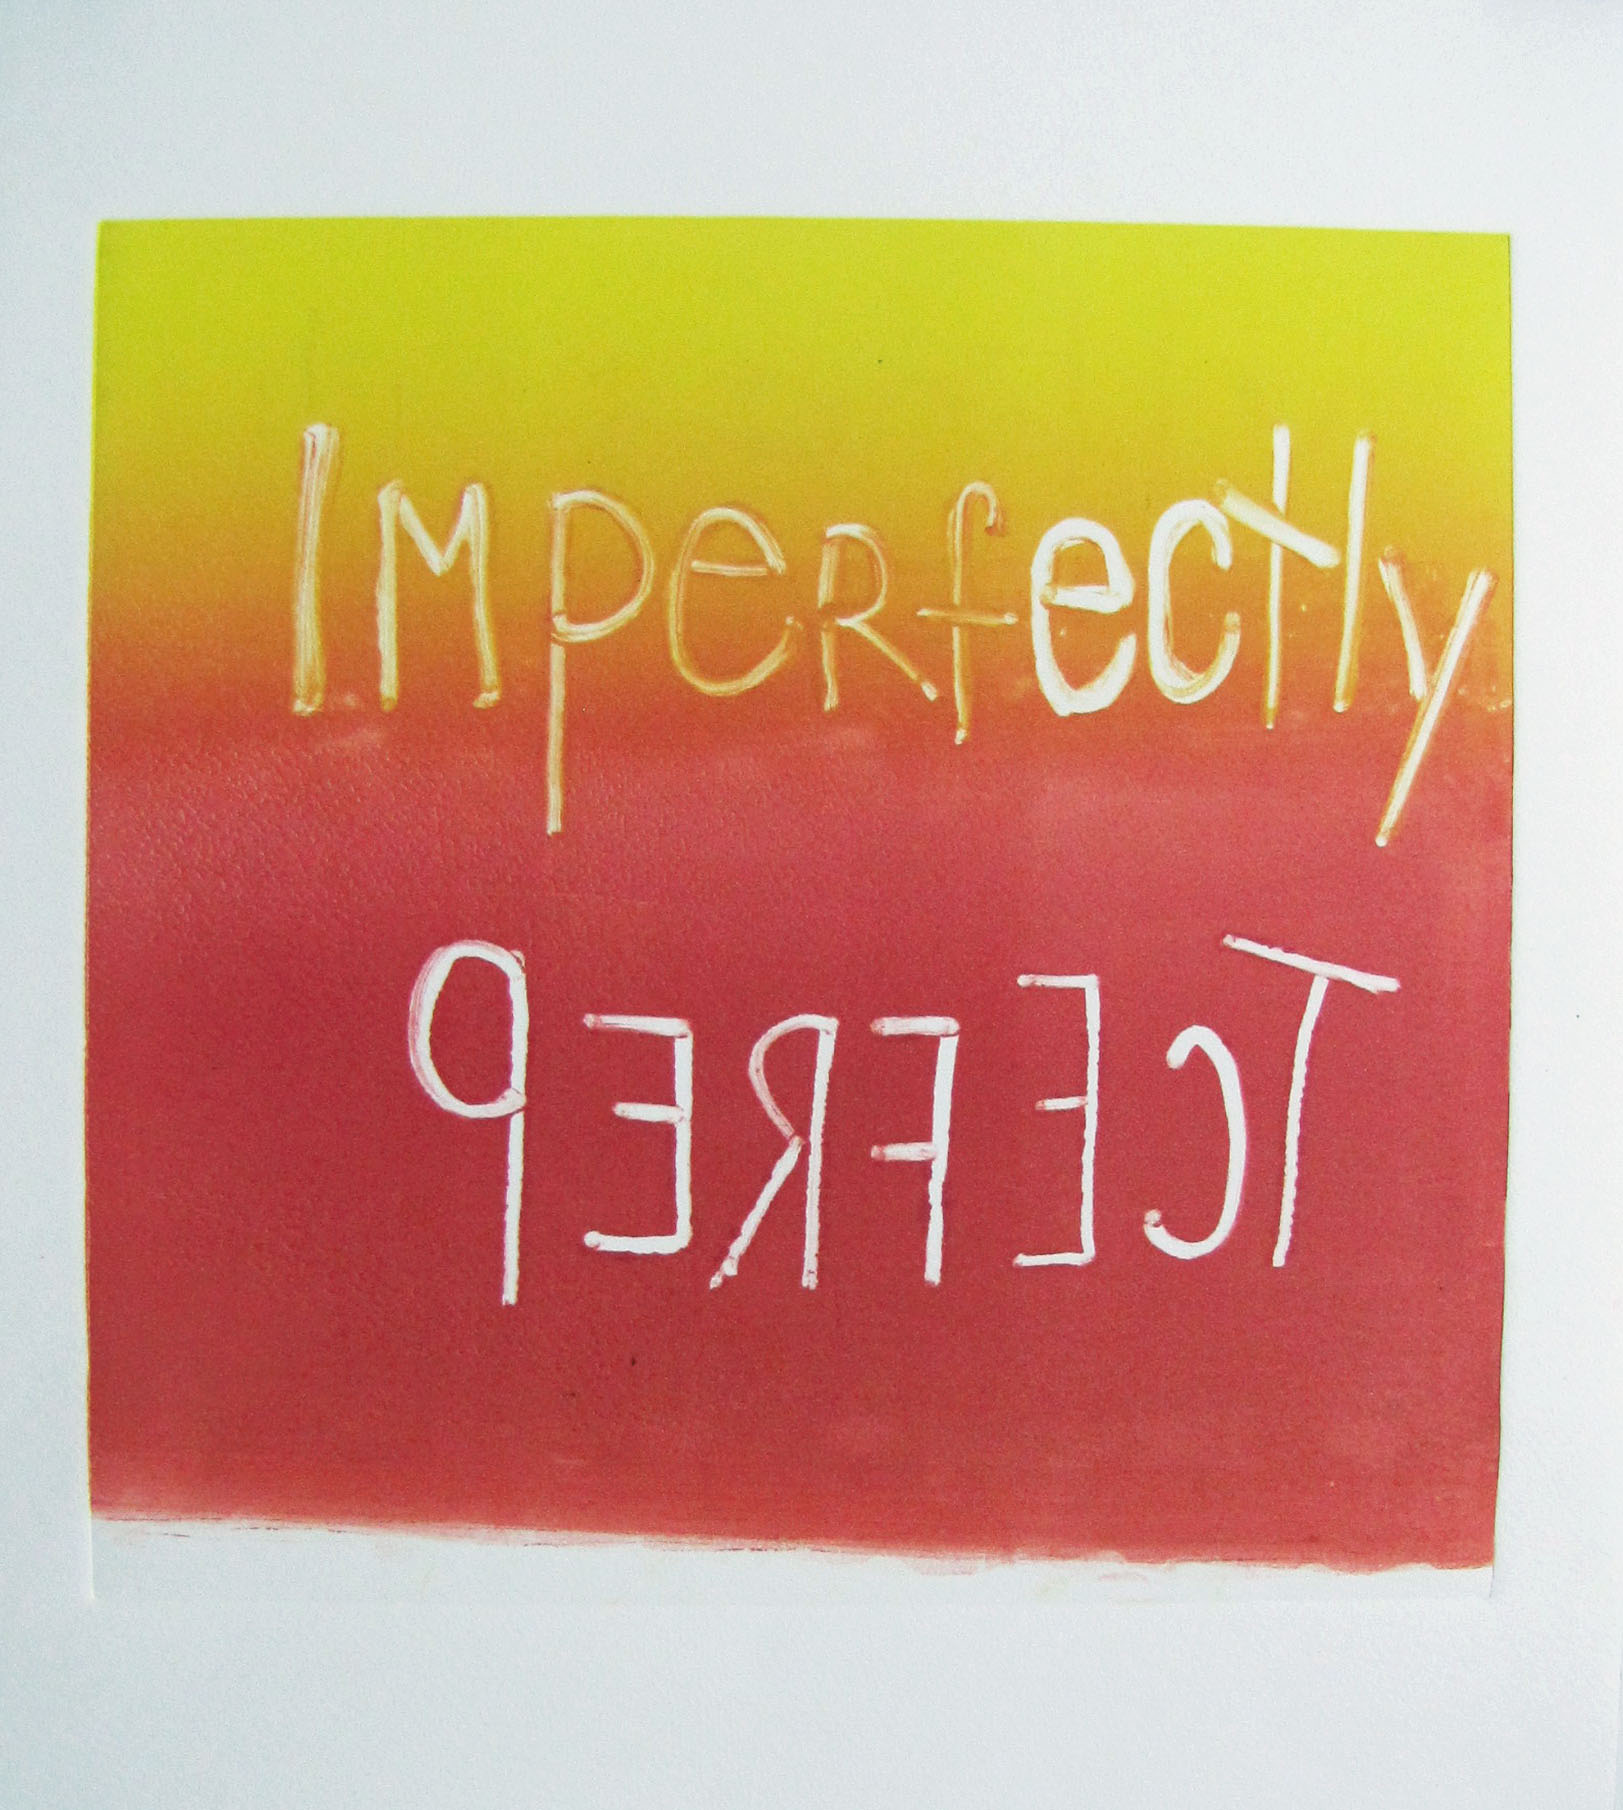 Imperfectly
PERFECT